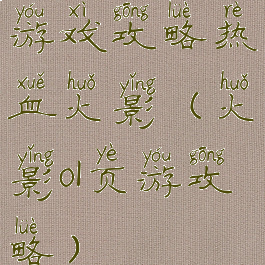 yóu xì gōng lüè rè
游戏攻略热
xuě huǒ yǐng huǒ
血火影（火
yǐng yè yóu gōng
影01页游攻
lüè
略）